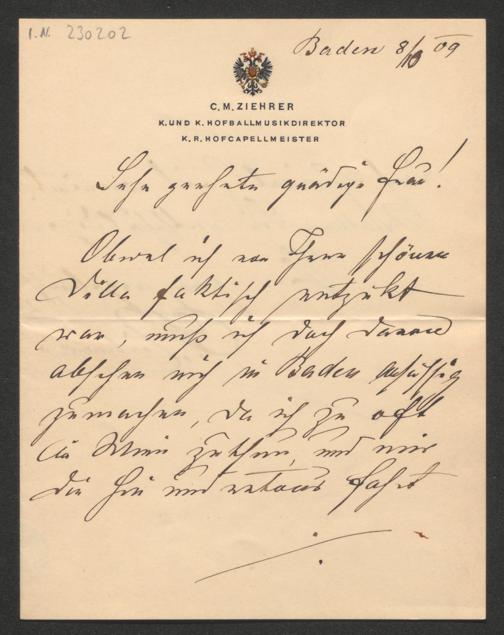 I.N. 230202
Baden 8/10 09
C. M. ZIEHRER
K. UND K. HOFBALLMUSIKDIREKTOR
K. R. HOFCAPELLMEISTER
Sehr geehrte gnädige Frau!
Obwol ich von Ihrer schönen
Villa faktisch entzükt
war, muß ich doch davon
absehen mich in Baden ansässig
zumachen, da ich zu oft
in Wien zuthun, und mir
die Hin und retour fahrt